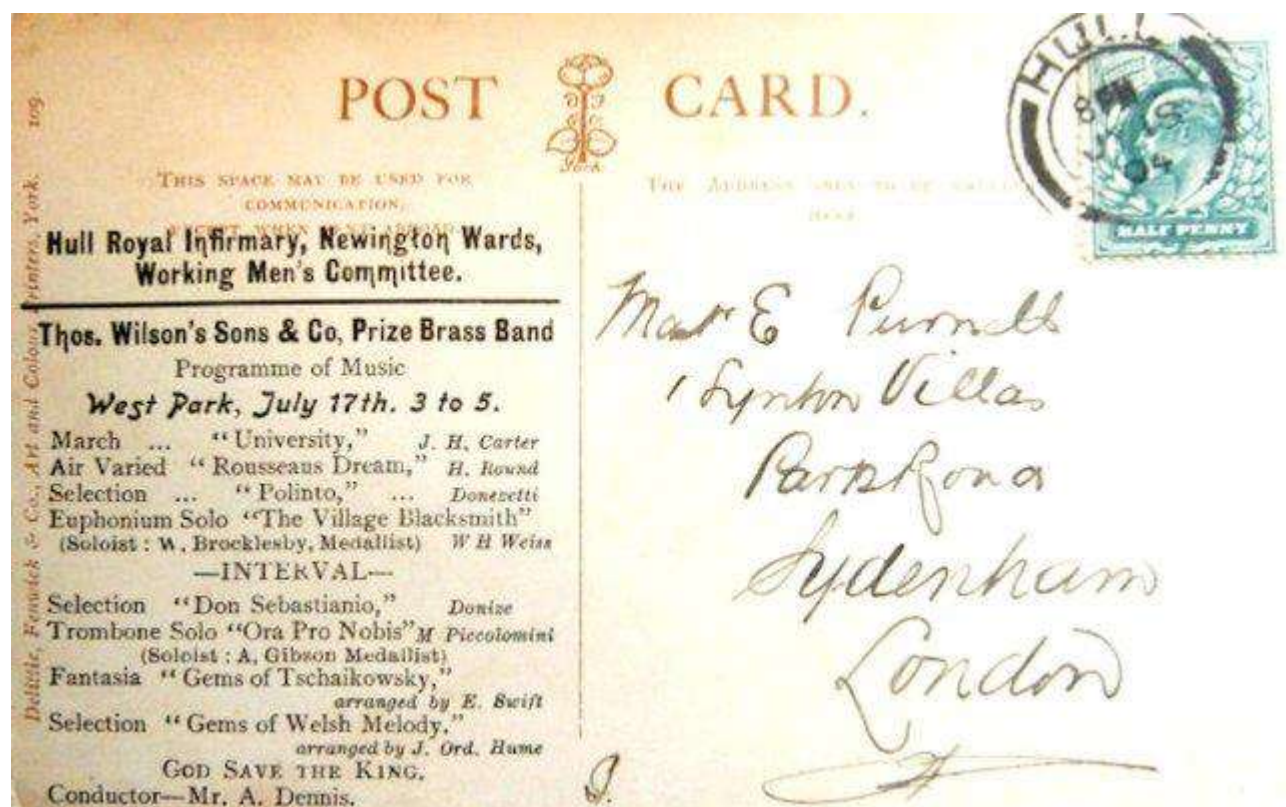 POST CARD.
York.
THIS SPACE MAY BE USED FOR
COMMUNICATION,
Hull Royal Infirmary, Newington Wards,
Working Men's Committee.
Thos. Wilson's Sons & Co, Prize Brass Band
Programme of Music
West Park, July 17th. 3 to 5.
March ... "University," J. H. Carter
Air Varied "Rousseaus Dream," H. Round
Selection ... "Polinto," ... Donezetti
Euphonium Solo "The Village Blacksmith"
(Soloist : W. Brocklesby, Medallist) W H Weiss
—INTERVAL—
Selection "Don Sebastianio," Donize
Trombone Solo "Ora Pro Nobis" M Piccolomini
(Soloist : A, Gibson Medallist)
Fantasia "Gems of Tschaikowsky,"
arranged by E. Swift
Selection "Gems of Welsh Melody,"
arranged by J. Ord. Hume
GOD SAVE THE KING.
Conductor—Mr. A. Dennis.
Delittle, Fenwick & Co., Art and Colour Printers, York. 109.
HULL
8 PM
04
HALF PENNY
THE ADDRESS ONLY TO BE WRITTEN
HERE
E Purnell
1 Lynton Villas
Park Road
Sydenham
London